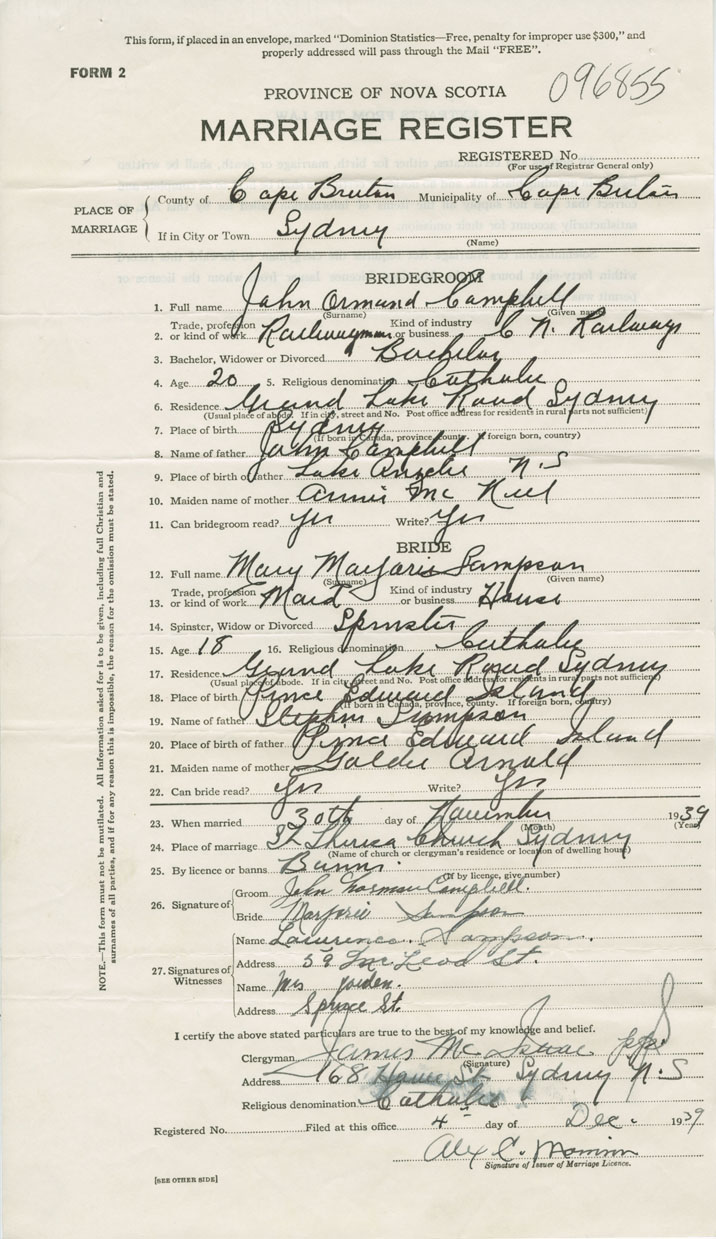 This form, if placed in an envelope, marked "Dominion Statistics—Free, penalty for improper use $300," and
properly addressed will pass through the Mail "FREE".
FORM 2
096855
PROVINCE OF NOVA SCOTIA
MARRIAGE REGISTER
REGISTERED No.
(For use of Registrar General only)
PLACE OF MARRIAGE
County of Cape Breton Municipality of Cape Breton
If in City or Town Sydney
(Name)
BRIDEGROOM
1. Full name John Ormand Campbell
(Surname) (Given name)
2. Trade, profession or kind of work Railwayman Kind of industry or business C N. Railways
3. Bachelor, Widower or Divorced Bachelor
4. Age 20 5. Religious denomination Catholic
6. Residence Grand Lake Road Sydney
(Usual place of abode. If in city, street and No. Post office address for residents in rural parts not sufficient)
7. Place of birth Sydney
(If born in Canada, province, county. If foreign born, country)
8. Name of father John Campbell
9. Place of birth of father Lake N.S
10. Maiden name of mother Annie Mc Neil
11. Can bridegroom read? Yes Write? Yes
BRIDE
12. Full name Mary Marjorie Sampson
(Surname) (Given name)
13. Trade, profession or kind of work Maid Kind of industry or business House
14. Spinster, Widow or Divorced Spinster
15. Age 18 16. Religious denomination Catholic
17. Residence Grand Lake Road Sydney
(Usual place of abode. If in city, street and No. Post office address for residents in rural parts not sufficient)
18. Place of birth Prince Edward Island
(If born in Canada, province, county. If foreign born, country)
19. Name of father Stephen Sampson
20. Place of birth of father Prince Edward Island
21. Maiden name of mother Goldie Arnold
22. Can bride read? Yes Write? Yes
23. When married 30th day of November 1939
(Month) (Year)
24. Place of marriage St. Theresa Church Sydney
(Name of church or clergyman's residence or location of dwelling house)
25. By licence or banns Banns.
(If by licence, give number)
26. Signature of
Groom John Norman Campbell.
Bride Marjorie Sampson
27. Signatures of Witnesses
Name Lawrence Sampson.
Address 59 McLeod St.
Name Mrs
Address Spruce St.
I certify the above stated particulars are true to the best of my knowledge and belief.
Clergyman James Mc Isaac
(Signature)
Address 168 St. Sydney N.S
Religious denomination Catholic
Registered No. Filed at this office 4 day of Dec. 1939
Alex C.
Signature of Issuer of Marriage Licence.
[SEE OTHER SIDE]
NOTE.—This form must not be mutilated. All Information asked for is to be given, including full Christian and
surnames of all parties, and if for any reason this is impossible, the reason for the omission must be stated.